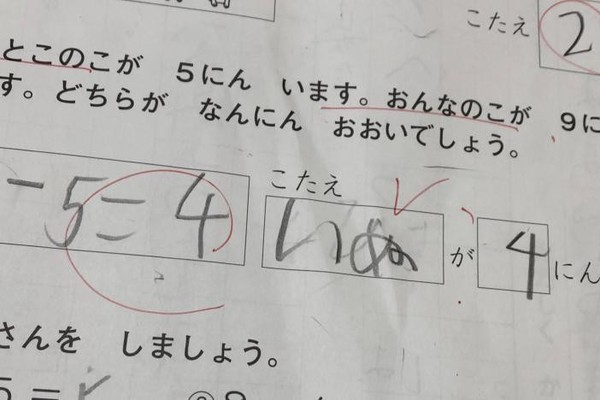 こたえ 2
とこのこが 5にん います。おんなのこが 9に
す。どちらが なんにん おおいでしょう。
-5=4 こたえ いぬ が 4 にん
さんを しましょう。
5=